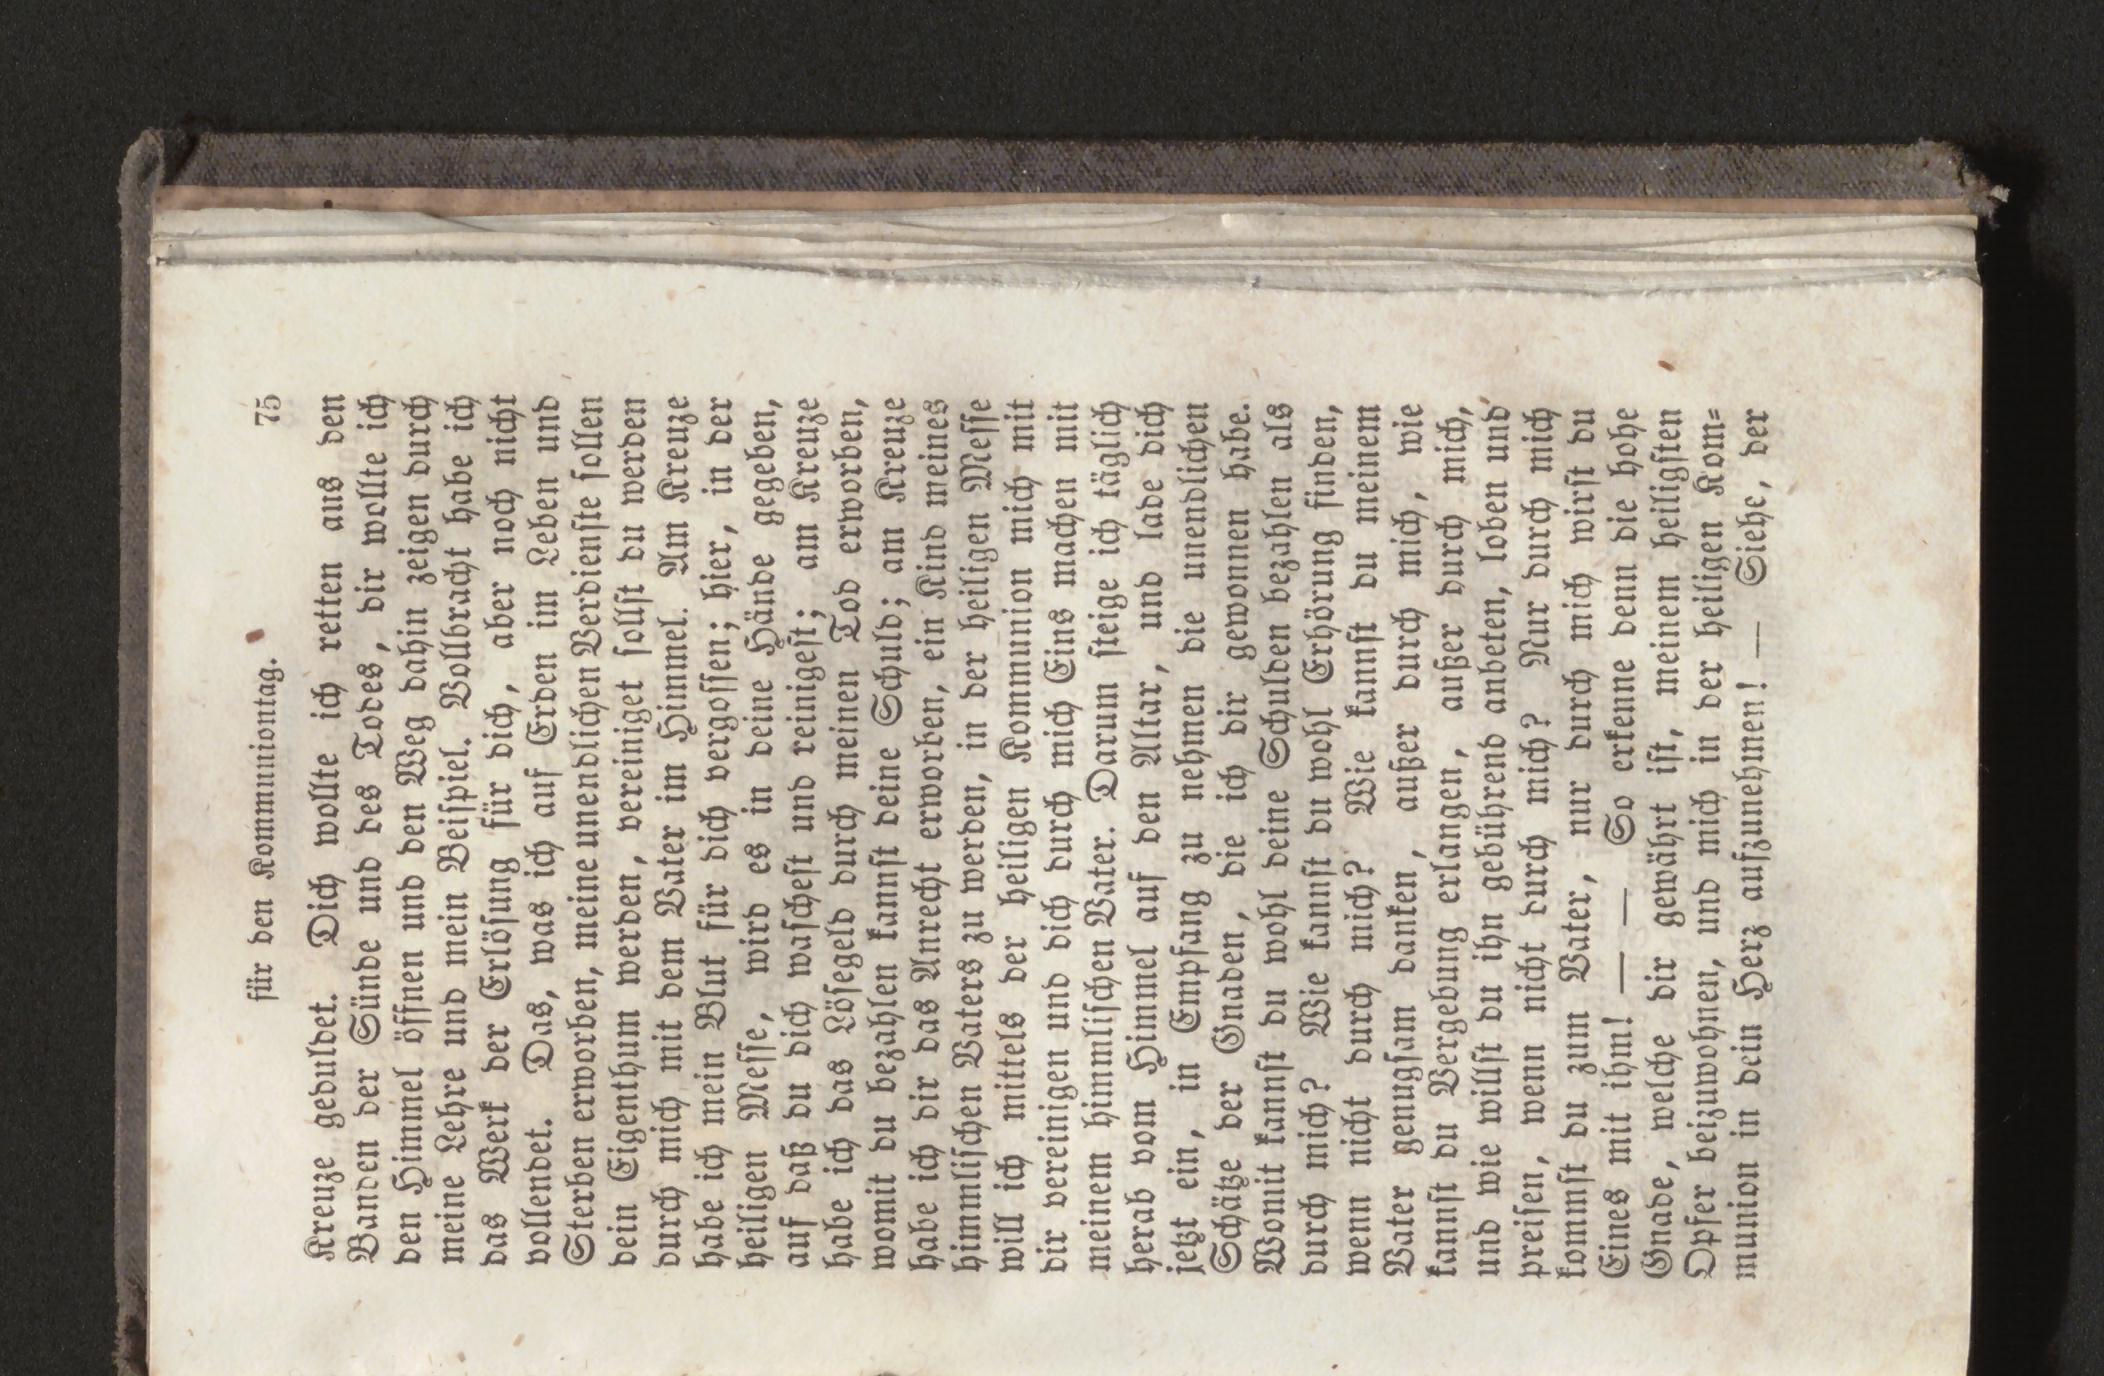 für den Kommuniontag. 75
Kreuze geduldet. Dich wollte ich retten aus den
Banden der Sünde und des Todes, dir wollte ich
den Himmel öffnen und den Weg dahin zeigen durch
meine Lehre und mein Beiſpiel. Vollbracht habe ich
das Werk der Erlöſung für dich, aber noch nicht
vollendet. Das, was ich auf Erden im Leben und
Sterben erworben, meine unendlichen Verdienſte ſollen
dein Eigenthum werden, vereiniget ſollſt du werden
durch mich mit dem Vater im Himmel. Am Kreuze
habe ich mein Blut für dich vergoſſen; hier, in der
heiligen Meſſe, wird es in deine Hände gegeben,
auf daß du dich waſcheſt und reinigeſt; am Kreuze
habe ich das Löſegeld durch meinen Tod erworben,
womit du bezahlen kannſt deine Schuld; am Kreuze
habe ich dir das Anrecht erworben, ein Kind meines
himmliſchen Vaters zu werden, in der heiligen Meſſe
will ich mittels der heiligen Kommunion mich mit
dir vereinigen und dich durch mich Eins machen mit
meinem himmliſchen Vater. Darum ſteige ich täglich
herab vom Himmel auf den Altar, und lade dich
jetzt ein, in Empfang zu nehmen die unendlichen
Schätze der Gnaden, die ich dir gewonnen habe.
Womit kannſt du wohl deine Schulden bezahlen als
durch mich? Wie kannſt du wohl Erhörung finden,
wenn nicht durch mich? Wie kannſt du meinem
Vater genugſam danken, außer durch mich, wie
kannſt du Vergebung erlangen, außer durch mich,
und wie willſt du ihn gebührend anbeten, loben und
preiſen, wenn nicht durch mich? Nur durch mich
kommſt du zum Vater, nur durch mich wirſt du
Eines mit ihm! — — So erkenne denn die hohe
Gnade, welche dir gewährt iſt, meinem heiligſten
Opfer beizuwohnen, und mich in der heiligen Kom⸗
munion in dein Herz aufzunehmen! — Siehe, der